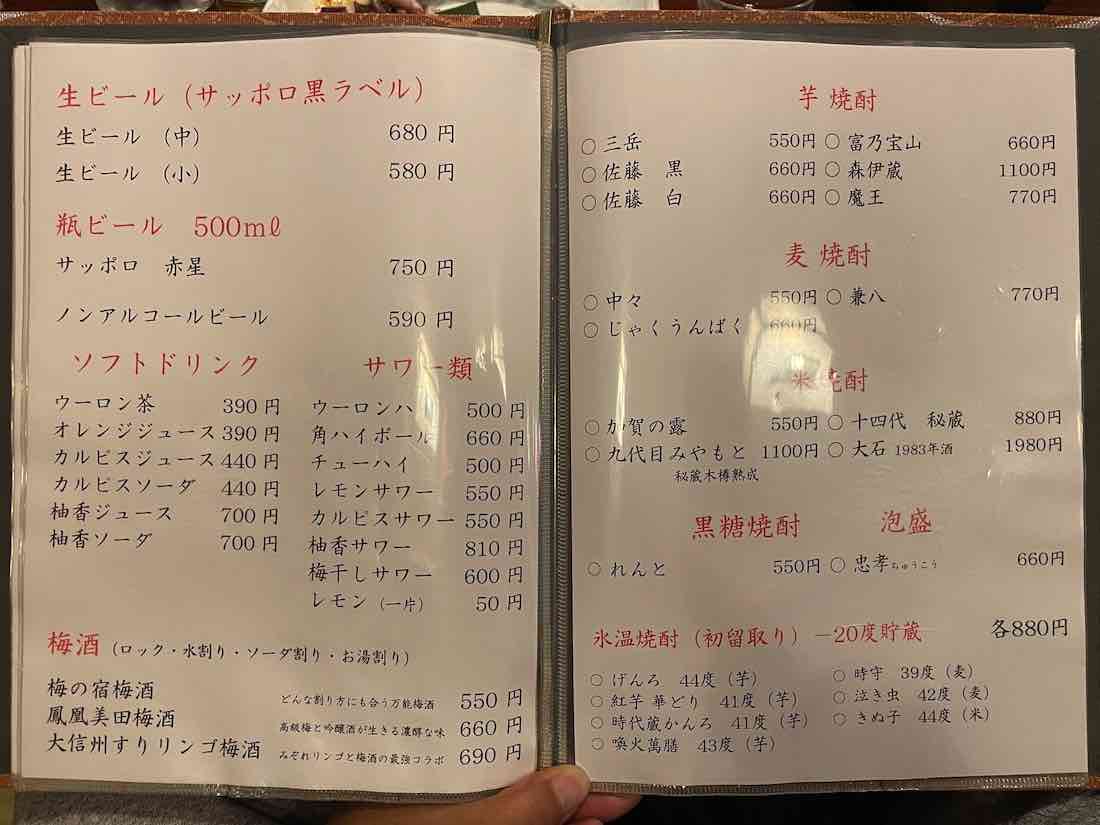 生ビール（サッポロ黒ラベル）
生ビール （中） 680 円
生ビール （小） 580 円
瓶ビール 500mℓ
サッポロ 赤星 750 円
ノンアルコールビール 590 円
ソフトドリンク
ウーロン茶 390 円
オレンジジュース 390 円
カルピスジュース 440 円
カルピスソーダ 440 円
柚香ジュース 700 円
柚香ソーダ 700 円
サワー類
ウーロンハイ 500 円
角ハイボール 660 円
チューハイ 500 円
レモンサワー 550 円
カルピスサワー 550 円
柚香サワー 810 円
梅干しサワー 600 円
レモン（一片） 50 円
梅酒（ロック・水割り・ソーダ割り・お湯割り）
梅の宿梅酒 どんな割り方にも合う万能梅酒 550 円
鳳凰美田梅酒 高級梅と吟醸酒が生きる濃醇な味 660 円
大信州すりリンゴ梅酒 みぞれリンゴと梅酒の最強コラボ 690 円
芋 焼酎
○ 三岳 550円 ○ 富乃宝山 660円
○ 佐藤 黒 660円 ○ 森伊蔵 1100円
○ 佐藤 白 660円 ○ 魔王 770円
麦 焼酎
○ 中々 550円 ○ 兼八 770円
○ じゃくうんばく 660円
米 焼酎
○ 加賀の露 550円 ○ 十四代 秘蔵 880円
○ 九代目みやもと 1100円 ○ 大石 1983年酒 1980円
秘蔵木樽熟成
黒糖焼酎 泡盛
○ れんと 550円 ○ 忠孝ちゅうこう 660円
氷温焼酎（初留取り）－20度貯蔵 各880円
○ げんろ 44度（芋） ○ 時守 39度（麦）
○ 紅芋 華どり 41度（芋） ○ 泣き虫 42度（麦）
○ 時代蔵かんろ 41度（芋） ○ きぬ子 44度（米）
○ 喚火萬膳 43度（芋）